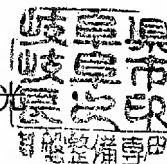 岐阜県
岐阜市
長之印
光
盤整備専用